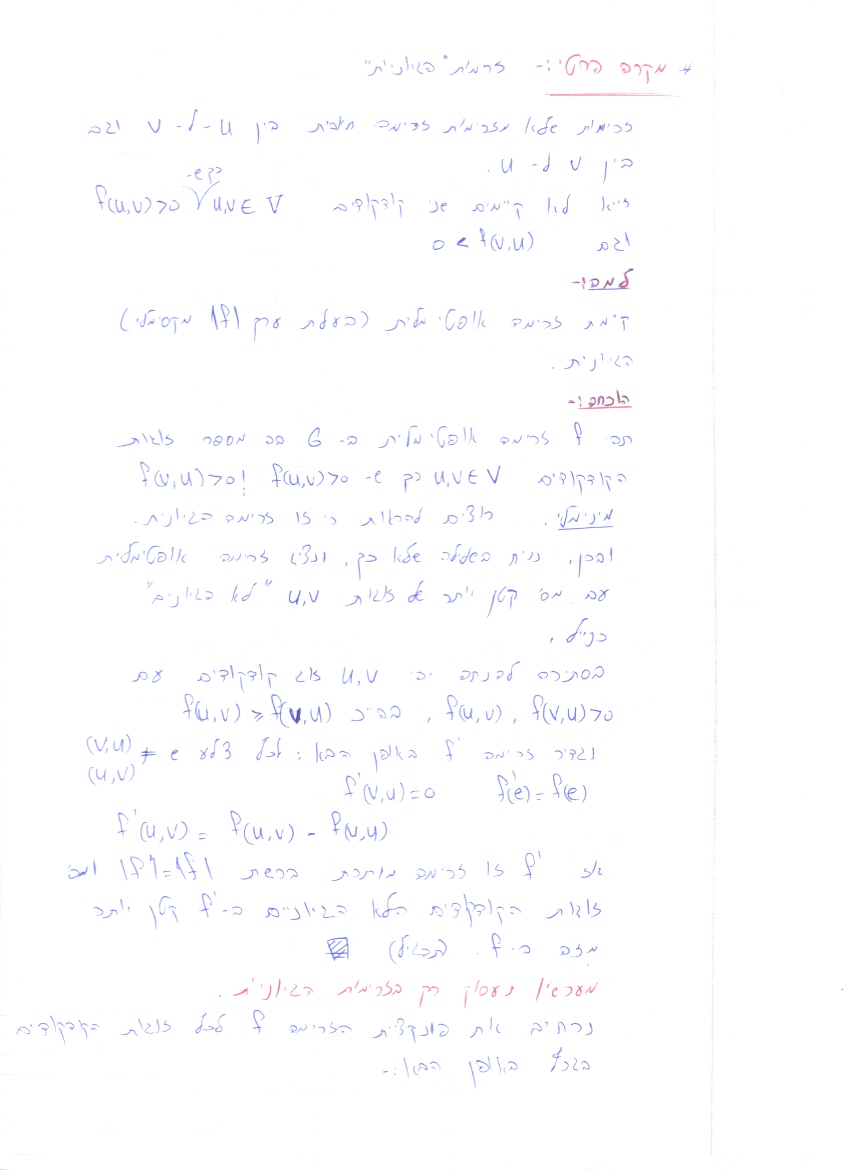 * מקרה פרטי :- זרימות "הגיוניות"
זרימות שלא מזרימות זרימה חיובית בין u ל-v וגם
בין v ל-u.
ז"א לא קיימים שני קודקודים u,v ∈ V כך ש- f(u,v)>0
וגם 0 < f(v,u)
למה:-
קיימת זרימה אופטימלית (בעלת ערך |f| מקסימלי)
הגיונית.
הוכחה:-
תהי f זרימה אופטימלית ב-G בה מספר זוגות
הקודקודים u,v ∈ V כך ש- f(u,v)>0 ו f(v,u)>0
מינימלי. רוצים להראות כי זו זרימה הגיונית.
ובכן, נניח בשלילה שלא כך, ונציג זרימה אופטימלית
עם מס' קטן יותר של זוגות u,v "לא הגיונים"
כנ"ל,
בסתירה להנחה יהי u,v זוג קודקודים עם
f(u,v), f(v,u)>0, בה"כ f(u,v) ≥ f(v,u)
נגדיר זרימה f' באופן הבא: לכל צלע e ≠ (v,u) (u,v)
f'(e)=f(e) f'(v,u)=0
f'(u,v) = f(u,v) - f(v,u)
אז f' זו זרימה מותרת ברשת |f'|=|f| ומס'
זוגות הקודקודים הלא הגיוניים ב-f' קטן יותר
מזה ב-f. (תרגיל)
מעכשיו נעסוק רק בזרימות הגיוניות.
נרחיב את פונקצית הזרימה f לכל זוגות הקודקודים
בגרף באופן הבא:-